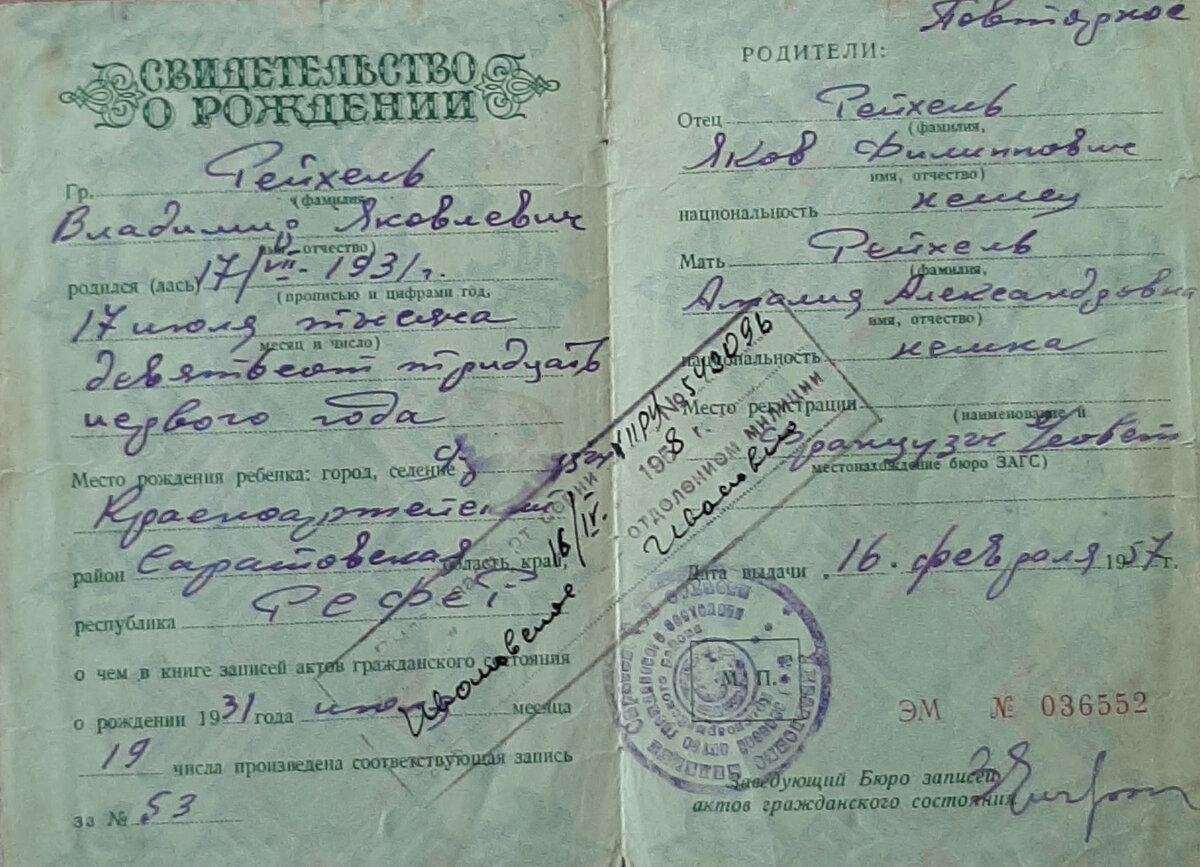 СВИДЕТЕЛЬСТВО
О РОЖДЕНИИ
Гр. Рейхель
(фамилия,
Владимир Яковлевич
имя, отчество)
родился (лась) 17/VII. 1931 г.
(прописью и цифрами год,
17 июля тысяча
месяц и число)
девятьсот тридцать
первого года
Место рождения ребенка: город, селение
Красноармейский
район Саратовская область, край,
республика РСФСР
о чем в книге записей актов гражданского состояния
о рождении 1931 года июля месяца
19 числа произведена соответствующая запись
за № 53
Повторное
РОДИТЕЛИ:
Отец Рейхель
(фамилия,
Яков Филиппович
имя, отчество)
национальность немец
Мать Рейхель
(фамилия,
Амалия Александровна
имя, отчество)
национальность немка
Место регистрации
(наименование и
местонахождение бюро ЗАГС)
Дата выдачи 16. февраля 1957 г.
М. П.
ЭМ № 036552
Заведующий Бюро записей
актов гражданского состояния
№ 543096
1958 г.
отделением милиции
16/IV.